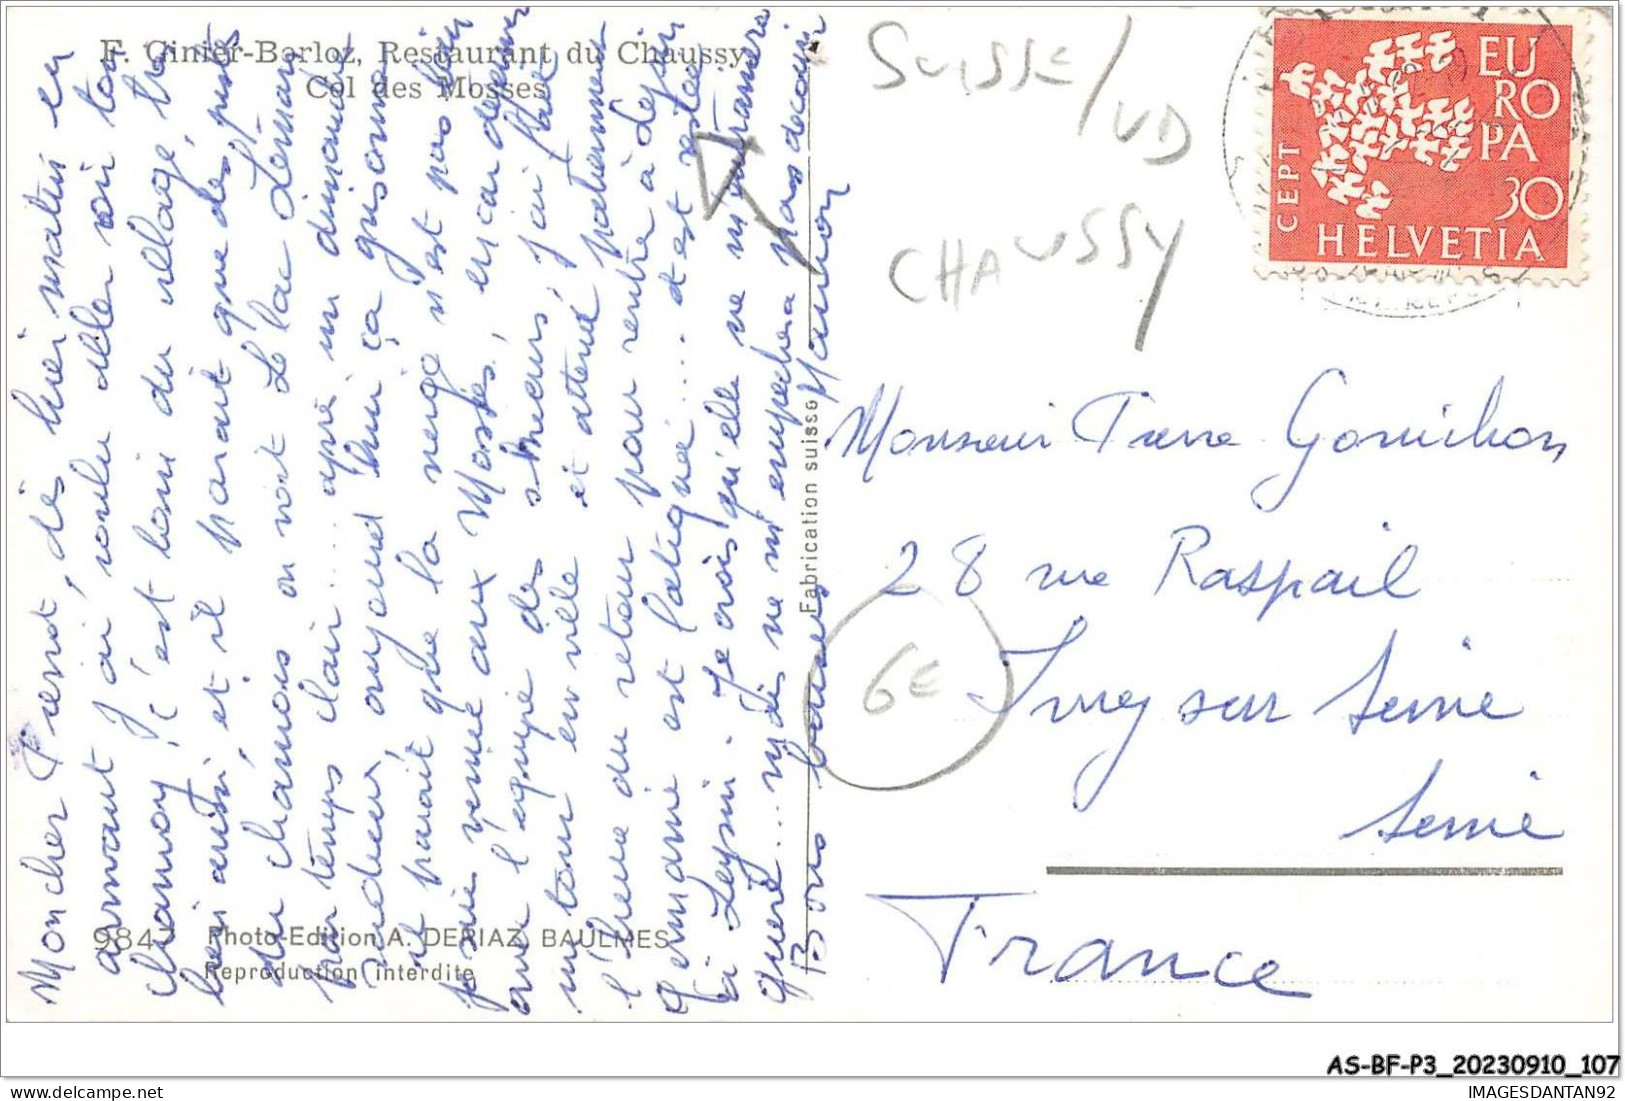 F. Ginier-Borloz, Restaurant du Chaussy
Col des Mosses
Mon cher Pierrot, dès hier matin en
arrivant j'ai voulu aller voir ton
chamony, c'est loin du village, très
bien aussi, et il parait que des pistes
du chamois on voit le lac Léman
par temps clair .... après un dimanche
radieux, aujourd'hui ça grisonne
il parait que la neige n'est pas loin
je suis venue aux Mosses, en car dernier
avec l'équipe des skieurs, j'ai fait
mon tour en ville et attend patiemment
l'heure du retour pour rentrer à Leysin
Germaine est fatiguée .... elle est restée
à Leysin. Je crois qu'elle ne m'entraînera
guère ... mais ne m'empêchera pas de courir
Bons baisers Manon
9847 Photo-Edition A. DERIAZ, BAULMES
Reproduction interdite
Fabrication suisse
SUISSE/VD
CHAUSSY
6€
EUROPA
CEPT
30
HELVETIA
Monsieur Pierre Gornichon
28 rue Raspail
Ivry sur Seine
Seine
France
AS-BF-P3_20230910_107
IMAGESDANTAN92